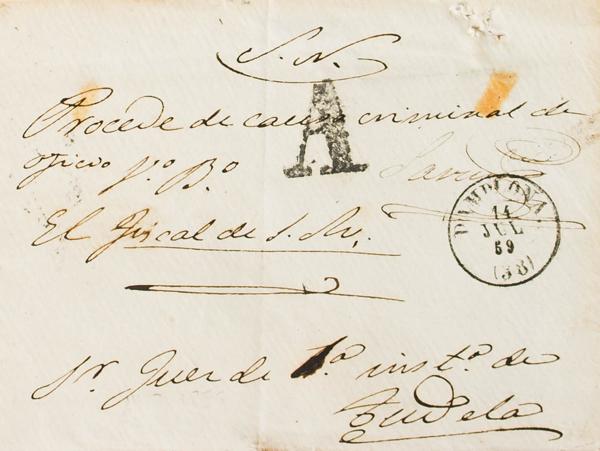 S. N.
A
Procede de causa criminal de
oficio V.º B.º
El Fiscal de S. M.
PAMPLONA
14
JUL
59
(38)
Sr. Juez de 1.ª inst.ª de
Tudela